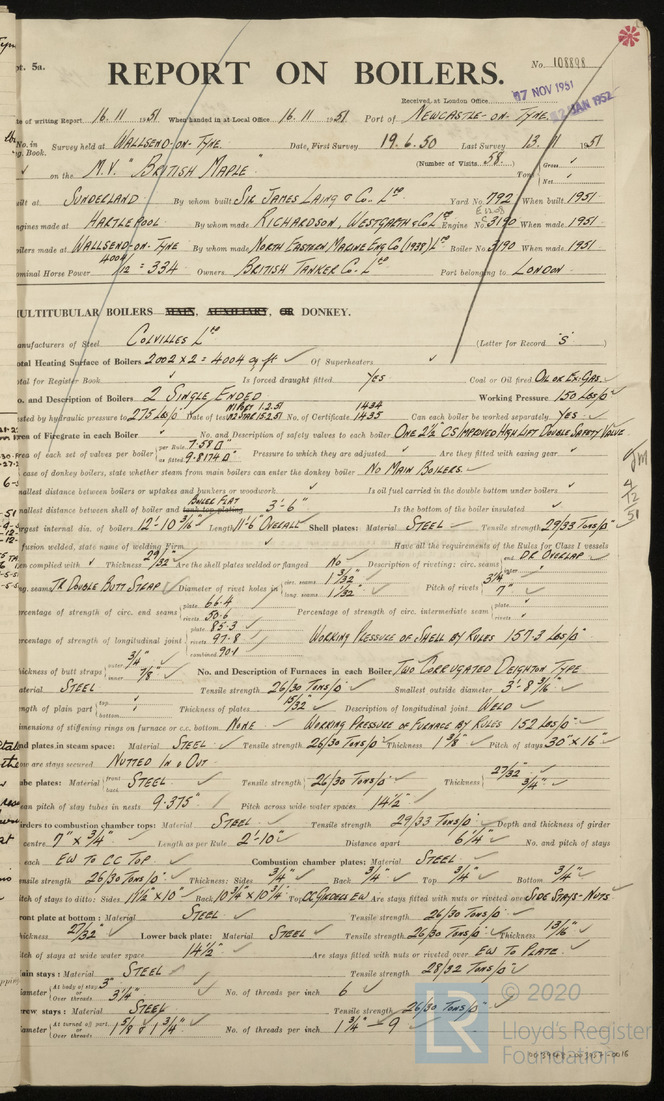 pt. 5a.
REPORT ON BOILERS.
No. 108898
Received at London Office
17 NOV 1951
2 JAN 1952
te of writing Report 16. 11 1951 When handed in at Local Office 16. 11 1951 Port of NEWCASTLE-ON-TYNE.
No. in Survey held at WALLSEND-ON-TYNE. Date, First Survey 19.6.50 Last Survey 13. 11 1951
g. Book.
(Number of Visits 58)
Gross
Tons
Net
on the M.V. "BRITISH MAPLE"
uilt at SUNDERLAND By whom built SIR JAMES LAING & CO. LTD Yard No. 792 When built 1951
ngines made at HARTLEPOOL By whom made RICHARDSON, WESTGARTH & CO. LTD Engine No. 3190 When made 1951
oilers made at WALLSEND-ON-TYNE By whom made NORTH EASTERN MARINE ENG CO (1938) LTD Boiler No. 3190 When made 1951
ominal Horse Power 4004/12 = 334 Owners BRITISH TANKER CO. LTD Port belonging to LONDON
ULTITUBULAR BOILERS MAIN, AUXILIARY, OR DONKEY.
anufacturers of Steel COLVILLES LTD (Letter for Record 'S')
otal Heating Surface of Boilers 2002 x 2 = 4004 sq ft Of Superheaters
otal for Register Book Is forced draught fitted YES Coal or Oil fired OIL OR EX. GAS.
o. and Description of Boilers 2 SINGLE ENDED Working Pressure 150 LBS/□"
sted by hydraulic pressure to 275 LBS/□" Date of test No1 PORT 1.2.51 No2 STAR 15.2.51 No. of Certificate 1434 1435 Can each boiler be worked separately YES
rea of Firegrate in each Boiler No. and Description of safety valves to each boiler ONE 2½" C.S IMPROVED HIGH LIFT DOUBLE SAFETY VALVE
rea of each set of valves per boiler per Rule 7.58 □" as fitted 9.8174 □" Pressure to which they are adjusted Are they fitted with easing gear
case of donkey boilers, state whether steam from main boilers can enter the donkey boiler NO MAIN BOILERS.
mallest distance between boilers or uptakes and bunkers or woodwork Is oil fuel carried in the double bottom under boilers
mallest distance between shell of boiler and tank top plating BOILER FLAT 3'-6" Is the bottom of the boiler insulated
argest internal dia. of boilers 12'-10 3/16" Length 11'-6" OVERALL Shell plates: Material STEEL Tensile strength 29/33 TONS/□"
fusion welded, state name of welding Firm Have all the requirements of the Rules for Class I vessels
een complied with Thickness 29/32" Are the shell plates welded or flanged NO Description of riveting: circ. seams end DR OVERLAP inter.
ng. seams TR DOUBLE BUTT STRAP Diameter of rivet holes in circ. seams 1 3/32" long. seams 1 1/32" Pitch of rivets 3¼" 7"
rcentage of strength of circ. end seams plate 66.4 rivets 50.6 Percentage of strength of circ. intermediate seam plate rivets
rcentage of strength of longitudinal joint plate 85.3 rivets 97.8 combined 90.1 WORKING PRESSURE OF SHELL BY RULES 157.3 LBS/□"
hickness of butt straps outer 3/4" inner 7/8" No. and Description of Furnaces in each Boiler TWO CORRUGATED DEIGHTON TYPE
aterial STEEL Tensile strength 26/30 TONS/□" Smallest outside diameter 3'-8 3/16"
ngth of plain part top bottom Thickness of plates 15/32" Description of longitudinal joint WELD
imensions of stiffening rings on furnace or c.c. bottom NONE WORKING PRESSURE OF FURNACE BY RULES 152 LBS/□"
nd plates in steam space: Material STEEL Tensile strength 26/30 TONS/□" Thickness 1 3/8" Pitch of stays 30" x 16"
ow are stays secured NUTTED IN & OUT
ube plates: Material front back STEEL Tensile strength 26/30 TONS/□" Thickness 27/32" 3/4"
an pitch of stay tubes in nests 9.375" Pitch across wide water spaces 14½"
irders to combustion chamber tops: Material STEEL Tensile strength 29/33 TONS/□" Depth and thickness of girder
centre 7" x 3/4" Length as per Rule 2'-10" Distance apart 6¼" No. and pitch of stays
each EW TO CC TOP. Combustion chamber plates: Material STEEL
ensile strength 26/30 TONS/□" Thickness: Sides 3/4" Back 3/4" Top 3/4" Bottom 3/4"
itch of stays to ditto: Sides 11½" x 10" Back 10¾" x 10¾" Top CC GIRDERS EW Are stays fitted with nuts or riveted over SIDE STAYS-NUTS
ront plate at bottom: Material STEEL Tensile strength 26/30 TONS/□"
hickness 27/32" Lower back plate: Material STEEL Tensile strength 26/30 TONS/□" Thickness 13/16"
itch of stays at wide water space 14½" Are stays fitted with nuts or riveted over EW TO PLATE.
ain stays: Material STEEL Tensile strength 28/32 TONS/□"
iameter At body of stay or Over threads 3" 3¼" No. of threads per inch 6
rew stays: Material STEEL Tensile strength 26/30 TONS/□"
iameter At turned off part or Over threads 1 5/8" & 1 3/4" No. of threads per inch 1 3/4" - 9
LR © 2020
Lloyd's Register
Foundation